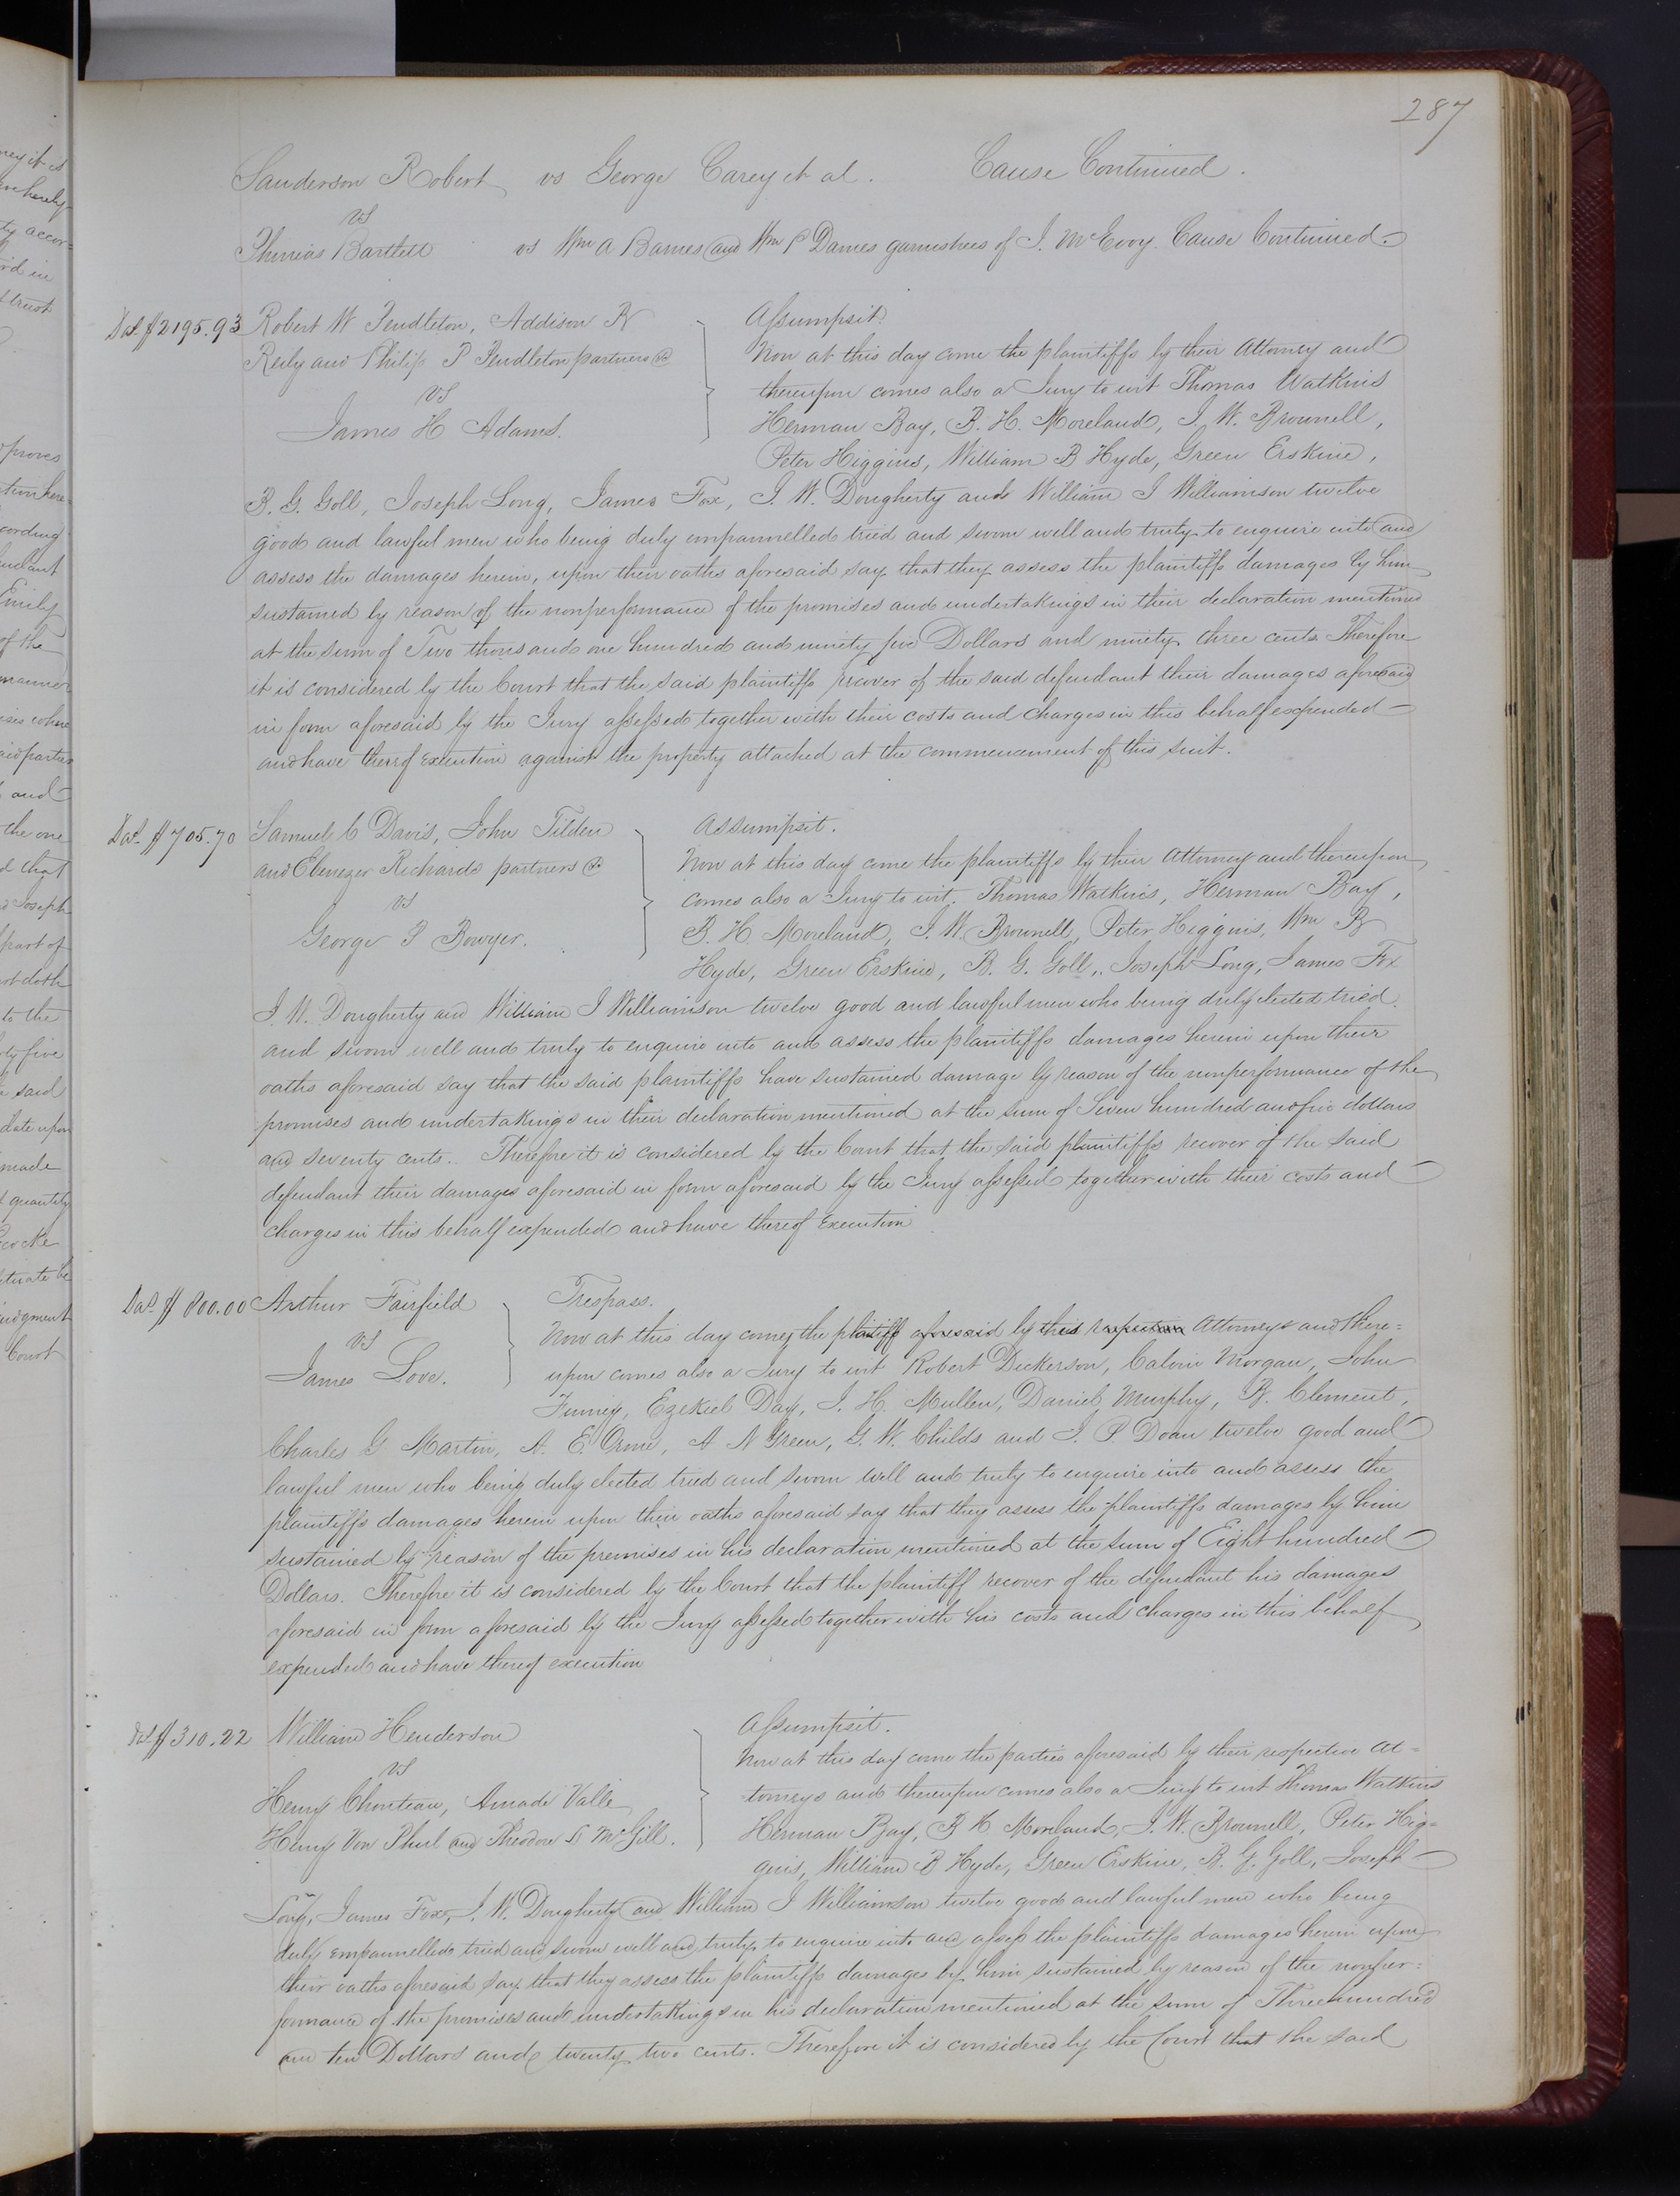 287
Sanderson Robert vs George Carey et al. Cause Continued.
vs
Thomas Bartlett vs Wm A Barnes and Wm P Dames garnishees of J. McEvoy. Cause Continued.
Das $2195.93 Robert W Pendleton, Addison R
Reily and Philip P Pendleton partners &c
vs
James H Adams.
Assumpsit.
Now at this day come the plaintiffs by their Attorney and
thereupon comes also a Jury to wit Thomas Watkins
Herman Bay, B. H. Moreland, J. W. Brownell,
Peter Higgins, William B Hyde, Green Erskine,
B. G. Goll, Joseph Long, James Fox, J. W. Dougherty and William J Williamson twelve
good and lawful men who being duly empannelled tried and sworn well and truly to enquire into and
assess the damages herein, upon their oaths aforesaid say that they assess the plaintiffs damages by him
sustained by reason of the nonperformance of the promises and undertakings in their declaration mentioned
at the sum of Two thousand one hundred and ninety five Dollars and ninety three cents Therefore
it is considered by the Court that the said plaintiffs recover of the said defendant their damages aforesaid
in form aforesaid by the Jury assessed together with their costs and charges in this behalf expended
and have thereof execution against the property attached at the commencement of this suit.
Das $705.70 Samuel C Davis, John Tilden
and Ebenezer Richards partners &c
vs
George P Bowyer.
Assumpsit.
Now at this day come the plaintiffs by their Attorney and thereupon
comes also a Jury to wit. Thomas Watkins, Herman Bay,
B. H. Moreland, J. W. Brownell, Peter Higgins, Wm B
Hyde, Green Erskine, B. G. Goll, Joseph Long, James Fox
J. W. Dougherty and William J Williamson twelve good and lawful men who being duly elected tried
and sworn well and truly to enquire into and assess the plaintiffs damages herein upon their
oaths aforesaid say that the said plaintiffs have sustained damage by reason of the nonperformance of the
promises and undertakings in their declaration mentioned at the sum of Seven hundred and five dollars
and seventy cents. Therefore it is considered by the Court that the said plaintiffs recover of the said
defendant their damages aforesaid in form aforesaid by the Jury assessed together with their costs and
charges in this behalf expended and have thereof execution
Das $800.00 Arthur Fairfield
vs
James Love.
Trespass.
Now at this day comes the plaintiff aforesaid by his respective Attorneys and there=
upon comes also a Jury to wit Robert Dickerson, Calvin Morgan, John
Finney, Ezekiel Day, J. H. Mullen, Daniel Murphy, B. Clement,
Charles G Martin, A. E. Orme, A N Green, G. W. Childs and J. P. Doan twelve good and
lawful men who being duly elected tried and sworn well and truly to enquire into and assess the
plaintiffs damages herein upon their oaths aforesaid say that they assess the plaintiffs damages by him
sustained by reason of the premises in his declaration mentioned at the sum of Eight hundred
Dollars. Therefore it is considered by the Court that the plaintiff recover of the defendant his damages
aforesaid in form aforesaid by the Jury assessed together with his costs and charges in this behalf
expended and have thereof execution
Das $310.22 William Henderson
vs
Henry Chouteau, Amadi Valle
Henry Von Phul and Theodore L McGill.
Assumpsit.
Now at this day come the parties aforesaid by their respective At=
torneys and thereupon comes also a Jury to wit Thomas Watkins
Herman Bay, B H Moreland, J. W. Brownell, Peter Hig=
gins, William B Hyde, Green Erskine, B. G. Goll, Joseph
Long, James Fox, J. W. Dougherty and William J Williamson twelve good and lawful men who being
duly empannelled tried and sworn well and truly to enquire into and assess the plaintiffs damages herein upon
their oaths aforesaid say that they assess the plaintiffs damages by him sustained by reason of the nonper=
formance of the promises and undertakings in his declaration mentioned at the sum of Three hundred
and ten Dollars and twenty two cents. Therefore it is considered by the Court that the said